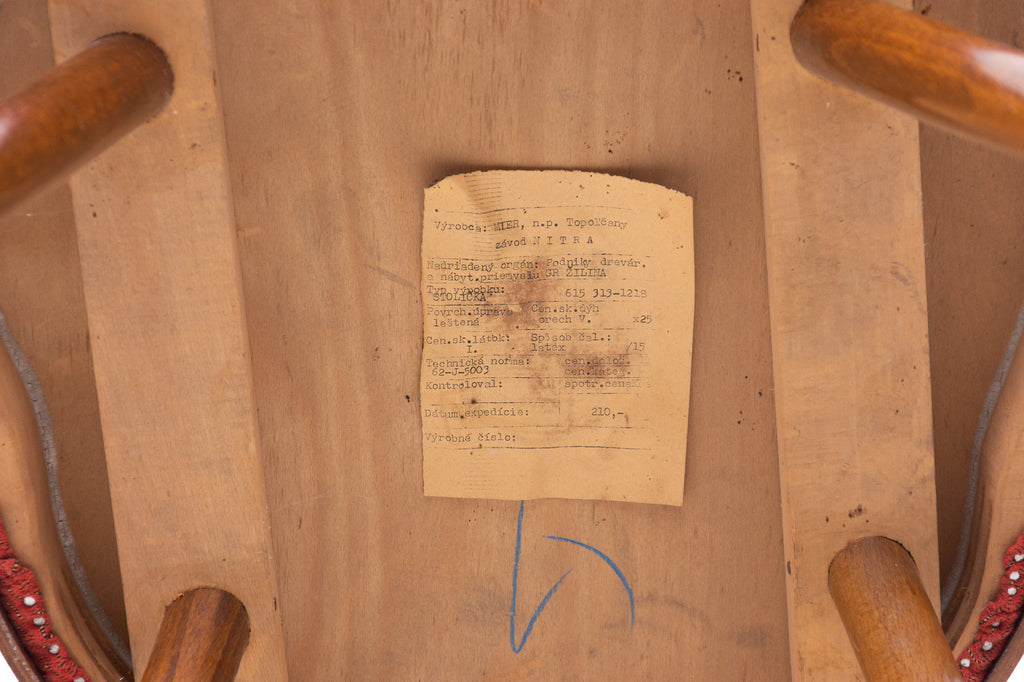 Výrobca: MIER, n.p. Topoľčany
závod N I T R A
Nadriadený orgán: Podniky drevár.
a nábyt.priemyslu GR ŽILINA
Typ výrobku: 615 313-1218
STOLIČKA
Povrch.úprava Cen.sk.dýh
leštená orech V. x25
Cen.sk.látok: Spôsob čal.:
I. latex /15
Technická norma: cen.dolož.
62-J-5003 cen.kateg.
Kontroloval: spotr.cena
Dátum expedície: 210,-
Výrobné číslo: